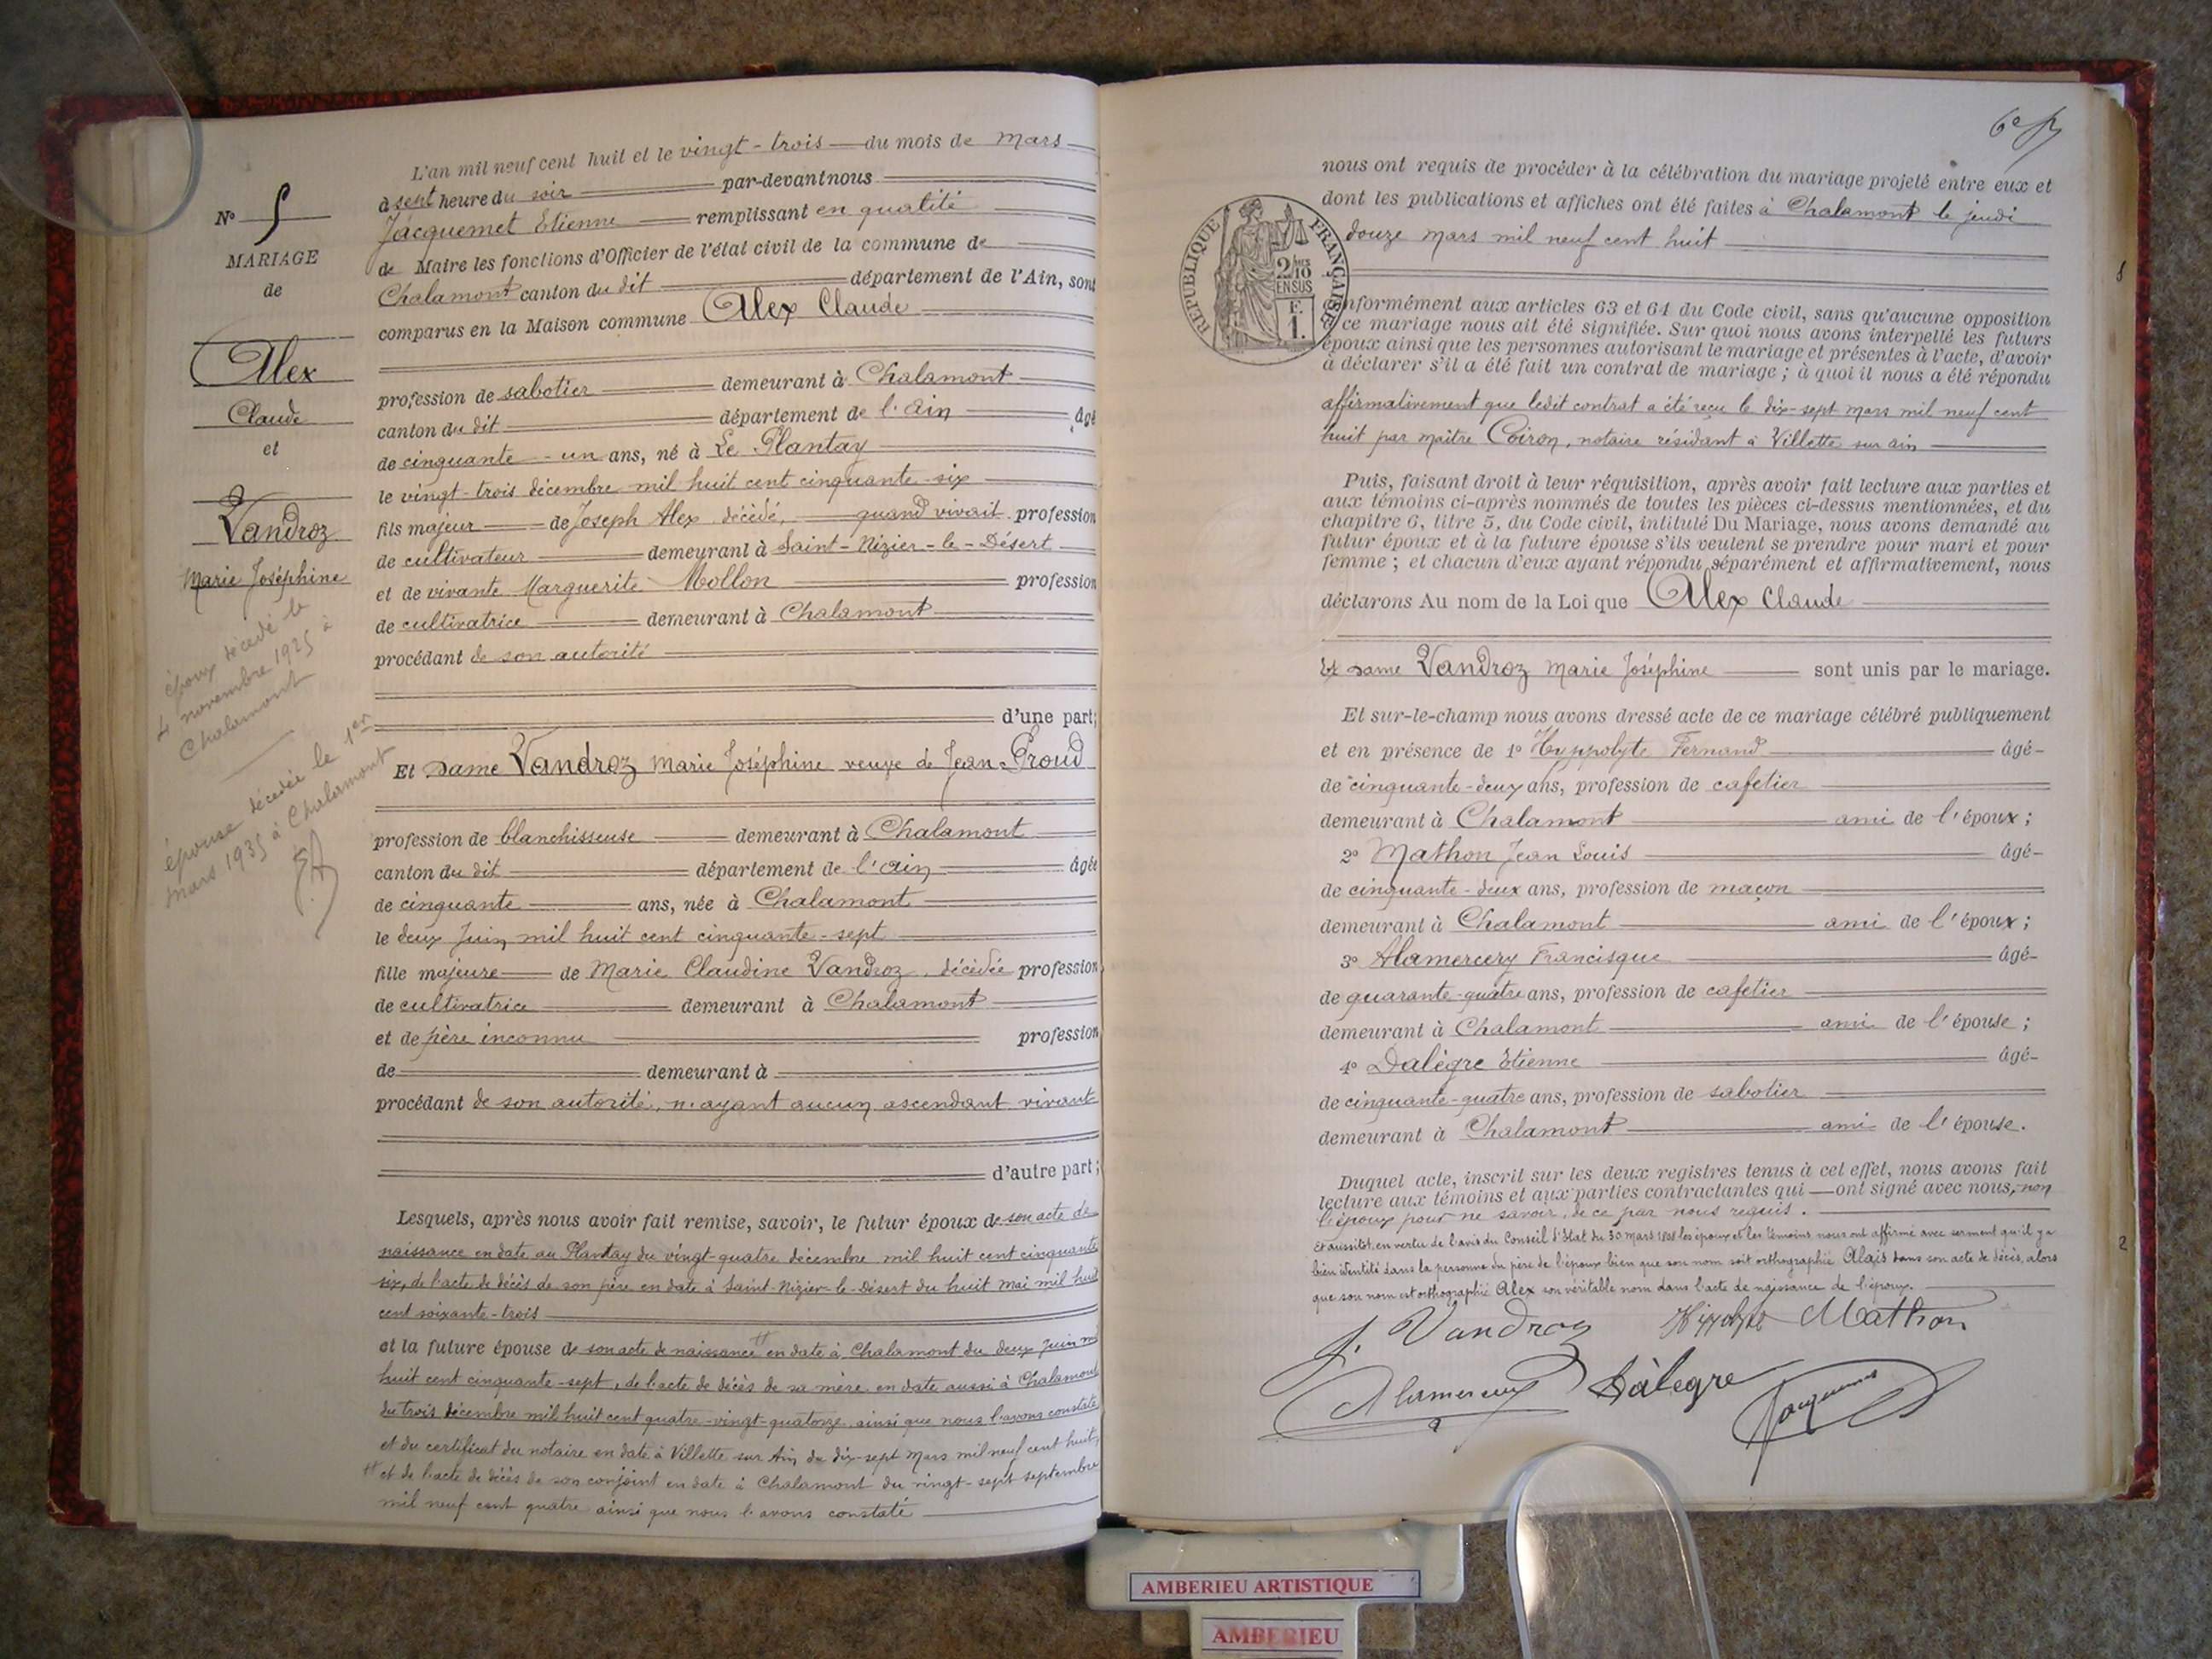 N° 5
MARIAGE
de
Alex
Claude
et
Vandroz
Marie Joséphine
époux décédé le
4 novembre 1925 à
Chalamont
épouse décédée le 1er
mars 1935 à Chalamont
L'an mil neuf cent huit et le vingt-trois du mois de Mars
à sept heure du soir par-devant nous
Jacquemet Etienne remplissant en qualité
de Maire les fonctions d'Officier de l'état civil de la commune de
Chalamont canton du dit département de l'Ain, sont
comparus en la Maison commune Alex Claude
profession de sabotier demeurant à Chalamont
canton du dit département de l'Ain âgé
de cinquante-un ans, né à Le Plantay
le vingt-trois décembre mil huit cent cinquante-six
fils majeur de Joseph Alex, décédé, quand vivait profession
de cultivateur demeurant à Saint-Nizier-le-Désert
et de vivante Marguerite Mollon profession
de cultivatrice demeurant à Chalamont
procédant de son autorité
d'une part;
Et Dame Vandroz Marie Joséphine veuve de Jean Proud
profession de blanchisseuse demeurant à Chalamont
canton du dit département de l'ain âgée
de cinquante ans, née à Chalamont
le deux Juin mil huit cent cinquante-sept
fille majeure de Marie Claudine Vandroz, décédée profession
de cultivatrice demeurant à Chalamont
et de père inconnu profession
de demeurant à
procédant de son autorité, n'ayant aucun ascendant vivant
d'autre part;
Lesquels, après nous avoir fait remise, savoir, le futur époux de son acte de
naissance en date au Plantay du vingt-quatre décembre mil huit cent cinquante
six, de l'acte de décès de son père en date à Saint-Nizier-le-Désert du huit Mai mil huit
cent soixante-trois
et la future épouse de son acte de naissance # en date à Chalamont du deux Juin mil
huit cent cinquante-sept, de l'acte de décès de sa mère en date aussi à Chalamont
du trois décembre mil huit cent quatre-vingt-quatorze ainsi que nous l'avons constaté
et du certificat du notaire en date à Villette sur Ain du dix-sept Mars mil neuf cent huit,
# et de l'acte de décès de son conjoint en date à Chalamont du vingt-sept septembre
mil neuf cent quatre ainsi que nous l'avons constaté
nous ont requis de procéder à la célébration du mariage projeté entre eux et
dont les publications et affiches ont été faites à Chalamont le jeudi
douze Mars mil neuf cent huit
RÉPUBLIQUE FRANÇAISE
2/10
EN SUS
F.
1.
conformément aux articles 63 et 64 du Code civil, sans qu'aucune opposition
à ce mariage nous ait été signifiée. Sur quoi nous avons interpellé les futurs
époux ainsi que les personnes autorisant le mariage et présentes à l'acte, d'avoir
à déclarer s'il a été fait un contrat de mariage; à quoi il nous a été répondu
affirmativement que ledit contrat a été reçu le dix-sept Mars mil neuf cent
huit par maître Coiron, notaire résidant à Villette sur ain
Puis, faisant droit à leur réquisition, après avoir fait lecture aux parties et
aux témoins ci-après nommés de toutes les pièces ci-dessus mentionnées, et du
chapitre 6, titre 5, du Code civil, intitulé Du Mariage, nous avons demandé au
futur époux et à la future épouse s'ils veulent se prendre pour mari et pour
femme; et chacun d'eux ayant répondu séparément et affirmativement, nous
déclarons Au nom de la Loi que Alex Claude
Et Dame Vandroz Marie Joséphine sont unis par le mariage.
Et sur-le-champ nous avons dressé acte de ce mariage célébré publiquement
et en présence de 1° Hyppolyte Fernand âgé
de cinquante-deux ans, profession de cafetier
demeurant à Chalamont ami de l'époux;
2° Mathon Jean Louis âgé
de cinquante-deux ans, profession de maçon
demeurant à Chalamont ami de l'époux;
3° Alamercery Francisque âgé
de quarante-quatre ans, profession de cafetier
demeurant à Chalamont ami de l'épouse;
4° Dalègre Etienne âgé
de cinquante-quatre ans, profession de sabotier
demeurant à Chalamont ami de l'épouse.
Duquel acte, inscrit sur les deux registres tenus à cet effet, nous avons fait
lecture aux témoins et aux parties contractantes qui ont signé avec nous, non
l'époux pour ne savoir, de ce par nous requis.
Et aussitôt en vertu de l'avis du Conseil d'Etat du 30 mars 1808 les époux et les témoins nous ont affirmé avec serment qu'il y a
bien identité dans la personne du père de l'époux bien que son nom soit orthographié Alais dans son acte de décès, alors
que son nom est orthographié Alex son véritable nom dans l'acte de naissance de l'époux.
J. Vandroz Hippolyte Mathon
Alamercery Dàlegre Jacquemet
AMBERIEU ARTISTIQUE
AMBERIEU